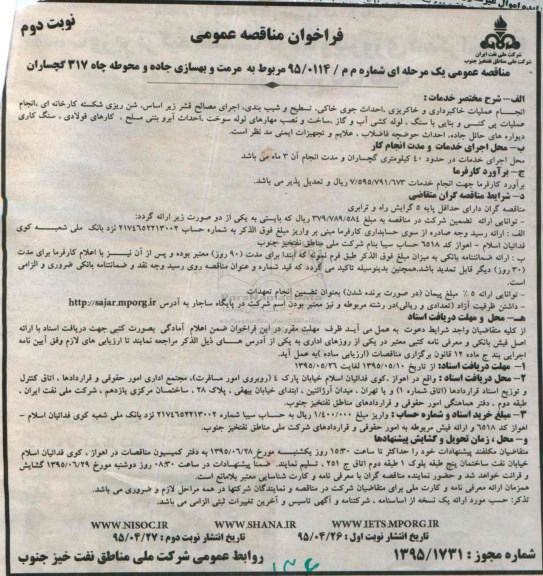 نوبت دوم
فراخوان مناقصه عمومی
شرکت ملی نفت ایران
شرکت ملی مناطق نفتخیز جنوب
مناقصه عمومی یک مرحله ای شماره م م / ۹۵/۰۱۱۴ مربوط به مرمت و بهسازی جاده و محوطه چاه ۳۱۷ گچساران
الف - شرح مختصر خدمات :
انجام عملیات خاکبرداری و خاکریزی ،احداث جوی خاکی، تسطیح و شیب بندی، اجرای مصالح قشر زیر اساس، شن ریزی شکسته کارخانه ای ،انجام
عملیات پی کنی و بنایی با سنگ ، لوله کشی آب و گاز ،ساخت و نصب مهارهای لوله سوخت ،احداث آبرو بتنی مسلح ، کارهای فولادی ، سنگ کاری
دیواره های حائل جاده، احداث حوضچه فاضلاب ، علایم و تجهیزات ایمنی مد نظر است.
ب- محل اجرای خدمات و مدت انجام کار
محل اجرای خدمات در حدود ۴۰ کیلومتری گچساران و مدت انجام آن ۳ ماه می باشد
ج- برآورد کارفرما
برآورد کارفرما جهت انجام خدمات ۷/۵۹۵/۷۹۱/۶۷۳ ریال و تعدیل پذیر می باشد.
د- شرایط مناقصه گران متقاضی
مناقصه گران دارای حداقل پایه ۵ گرایش راه و ترابری
- توانایی ارائه تضمین شرکت در مناقصه به مبلغ ۳۷۹/۷۸۹/۵۸۴ ریال که بایستی به یکی از دو صورت زیر ارائه گردد:
الف : ارائه رسید وجه صادره از سوی حسابداری کارفرما مبنی بر واریز مبلغ فوق الذکر به شماره حساب ۲۱۷۴۶۵۲۲۱۳۰۰۲ نزد بانک ملی شعبه کوی
فدائیان اسلام - اهواز کد ۶۵۱۸ حساب سیبا بنام شرکت ملی مناطق نفتخیز جنوب
ب : ارائه ضمانتنامه بانکی به میزان مبلغ فوق الذکر طبق فرم نمونه که ابتدا برای مدت (۹۰ روز) معتبر بوده و پس از آن نیز با اعلام کارفرما برای مدت
(۳۰ روز) دیگر قابل تمدید باشد.همچنین بدینوسیله تاکید می گردد که قید شماره و عنوان مناقصه روی رسید وجه نقد و ضمانتنامه بانکی ضروری و الزامی
است.
- توانایی ارائه ۵ ٪ مبلغ پیمان (در صورت برنده شدن) بعنوان تضمین انجام تعهدات
- داشتن ظرفیت آزاد (تعدادی و ریالی)در رشته مربوطه و نیز معتبر بودن اسم شرکت در پایگاه ساجار به آدرس http://sajar.mporg.ir
هـ- محل و مهلت دریافت اسناد
از کلیه متقاضیان واجد شرایط دعوت به عمل می آید ظرف مهلت مقرر در این فراخوان ضمن اعلام آمادگی بصورت کتبی جهت دریافت اسناد با ارائه
اصل فیش بانکی و معرفی نامه کتبی معتبر در یکی از روزهای اداری به یکی از آدرس های ذیل الذکر مراجعه نمایند تا ارزیابی های لازم وفق آیین نامه
اجرایی بند ج ماده ۱۲ قانون برگزاری مناقصات (ارزیابی ساده )به عمل آید.
۱- مهلت دریافت اسناد: از تاریخ ۱۳۹۵/۰۵/۱۰ لغایت ۱۳۹۵/۰۵/۲۶
۲- محل دریافت اسناد : واقع در اهواز ،کوی فدائیان اسلام خیابان پارک ۴ (روبروی امور مسافرت)، مجتمع اداری امور حقوقی و قراردادها ، اتاق کنترل
و توزیع اسناد قراردادها (اتاق شماره ۱) و یا تهران ، میدان آرژانتین ، ابتدای خیابان بیهقی ، پلاک ۲۸ ، ساختمان مرکزی یازدهم ، شرکت ملی نفت ایران ،
طبقه دوم ، دفتر هماهنگی امور حقوقی و قراردادهای مناطق نفتخیز جنوب.
۳- مبلغ خرید اسناد و شماره حساب : واریز مبلغ ۱/۴۰۰/۰۰۰ ریال به حساب سیبا شماره ۲۱۷۴۶۵۲۲۱۳۰۰۲ نزد بانک ملی شعبه کوی فدائیان اسلام -
اهواز کد ۶۵۱۸ و ارائه فیش مربوطه به امور حقوقی و قراردادهای شرکت ملی مناطق نفتخیز جنوب.
و- محل، زمان تحویل و گشایش پیشنهادها
مناقصان مکلفند پیشنهادات خود را حداکثر تا ساعت ۱۵:۳۰ روز یکشنبه مورخ ۱۳۹۵/۰۶/۲۸ به دفتر کمیسیون مناقصات در اهواز ، کوی فدائیان اسلام
خیابان نفت ساختمان پنج طبقه بلوک ۱ طبقه دوم اتاق ج ۲۵۱ ، تسلیم نمایند. ضمنا پیشنهادات در ساعت ۰۸:۳۰ روز دوشنبه مورخ ۱۳۹۵/۰۶/۲۹ گشایش
و قرائت خواهد شد و حضور نماینده مناقصه گران با معرفی نامه و کارت شناسایی معتبر بلامانع است.
همزمان ارائه معرفی نامه و کارت ملی برای متقاضیان شرکت در مناقصه و نمایندگان شرکتها در همه مراحل لازم و ضروری می باشد.
تذکر: حسب مورد ارائه یک نسخه از اساسنامه ، شرکتنامه و آگهی تاسیس و آخرین تغییرات ثبتی الزامی می باشد.
WWW.NISOC.IR WWW.SHANA.IR WWW.IETS.MPORG.IR
تاریخ انتشار نوبت اول : ۹۵/۰۴/۲۶ تاریخ انتشار نوبت دوم : ۹۵/۰۴/۲۷
شماره مجوز : ۱۳۹۵/۱۷۳۱ روابط عمومی شرکت ملی مناطق نفت خیز جنوب